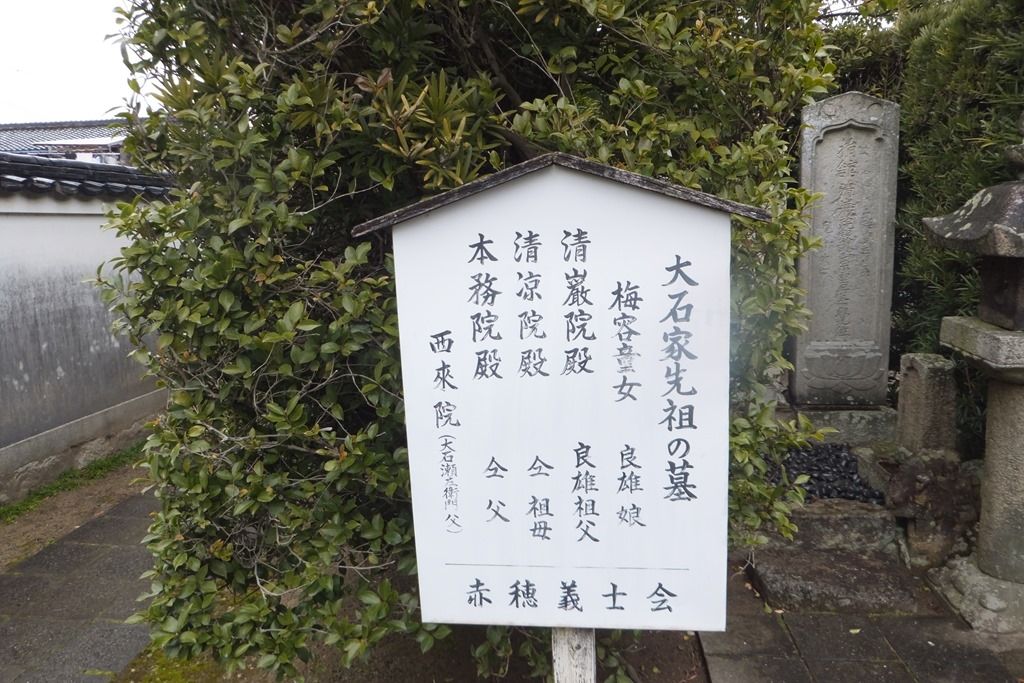 大石家先祖の墓
梅容童女 良雄娘
清巖院殿 良雄祖父
清凉院殿 仝祖母
本務院殿 仝父
西來院(大石瀬左衛門父)
赤穂義士会